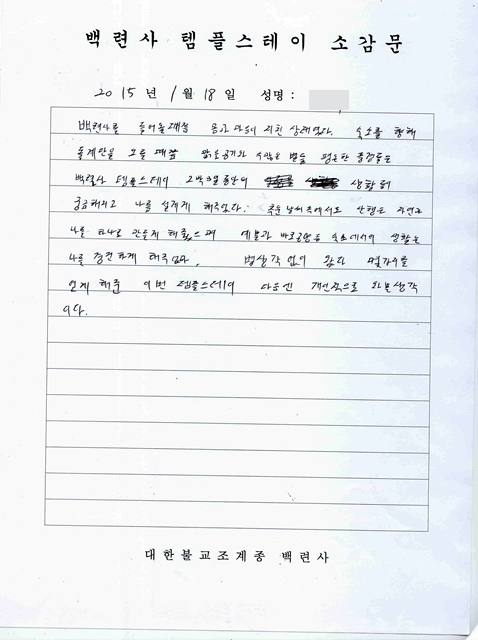 백련사 템플스테이 소감문
2015년 1월 18일 성명 :
백련사를 들어올때는 몸과 마음이 지친 상태였다. 숙소를 향해
돌계단을 오를 때쯤 맑은공기와 수많은 별들 평온한 풍경들은
백련사 템플스테이 2박3일 동안의 생활에
궁금해지고 나를 설레게 해주었다. 추운 날씨 속에서도 산행은 자연과
나를 하나로 만들게 해줬으며 예불과 바로 숙소에서의 생활은
나를 경건하게 해주었다. 별생각 없이 왔다
얻게 해준 이번 템플스테이 다음엔 개인적으로 와볼생각
이다.
대한불교조계종 백련사